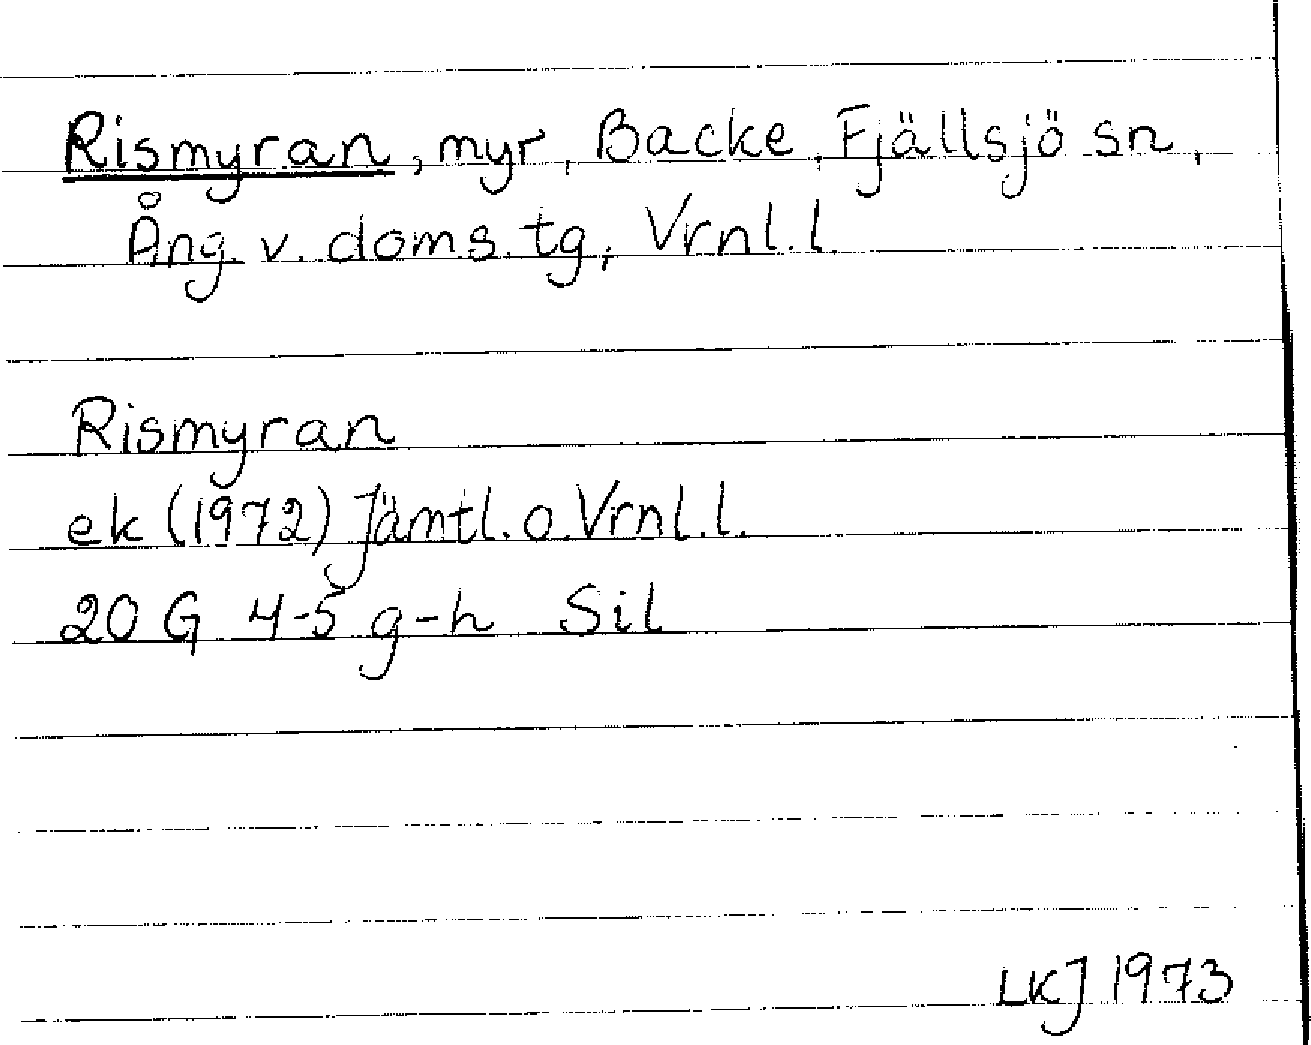 Rismyran, myr, Backe, Fjällsjö sn,
Ång. v. doms. tg, Vrnl. l.
Rismyran
ek (1972) Jämtl. o. Vrnl. l.
20 G 4-5 g-h Sil
LKJ 1973